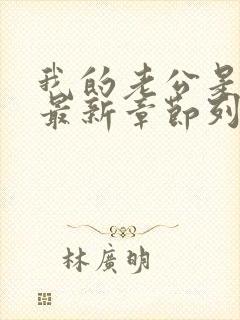 我的老公是
最新章節列
林廣明